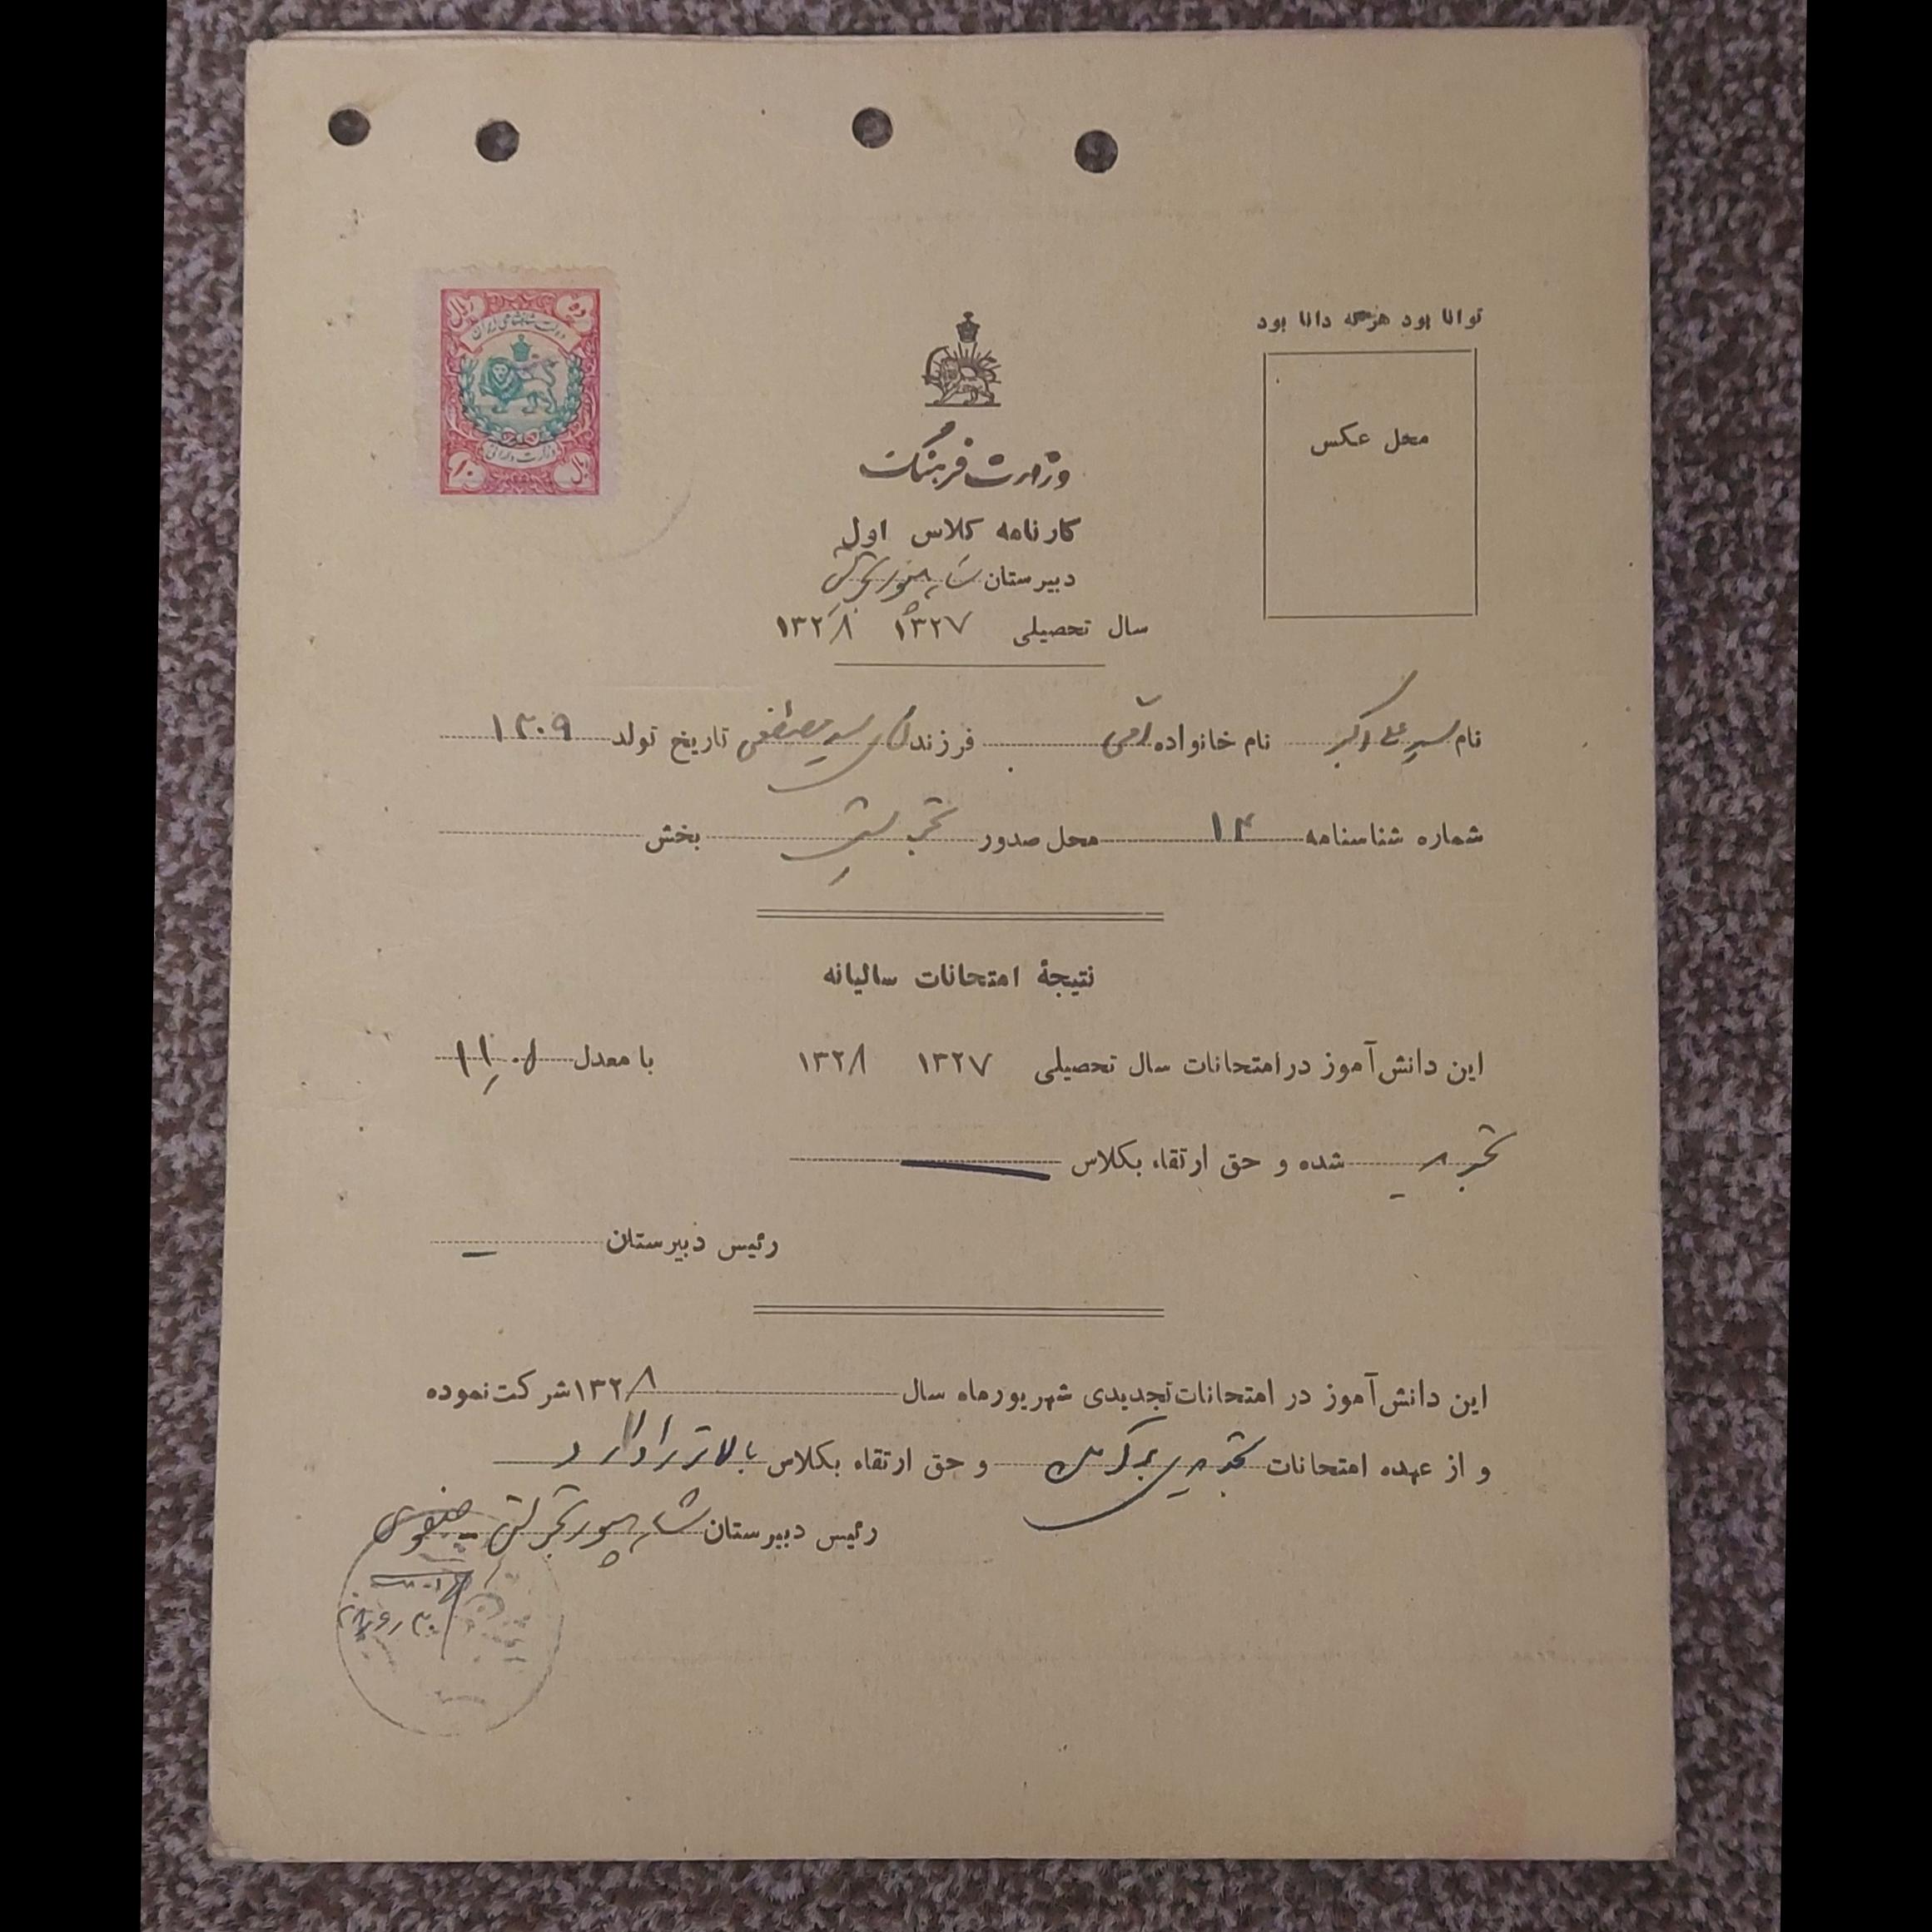 توانا بود هر که دانا بود
محل عکس
ده ریال
دولت شاهنشاهی ایران
وزارت دارائی
۱۰ ریال
وزارت فرهنگ
کارنامه کلاس اول
دبیرستان شاهپور تجریش
سال تحصیلی ۱۳۲۷ ۱۳۲۸
نام سید علی اکبر نام خانواده فرزند آقای سید مصطفی تاریخ تولد ۱۳۰۹
شماره شناسنامه ۱۴ محل صدور تجریش بخش
نتیجهٔ امتحانات سالیانه
این دانش‌آموز در امتحانات سال تحصیلی ۱۳۲۷ ۱۳۲۸ با معدل ۱۱,۰۸
تجدید شده و حق ارتقاء بکلاس
رئیس دبیرستان
این دانش‌آموز در امتحانات تجدیدی شهریورماه سال ۱۳۲۸ شرکت نموده
و از عهده امتحانات تجدیدی برآمده و حق ارتقاء بکلاس بالاتر را دارد
رئیس دبیرستان شاهپور تجریش